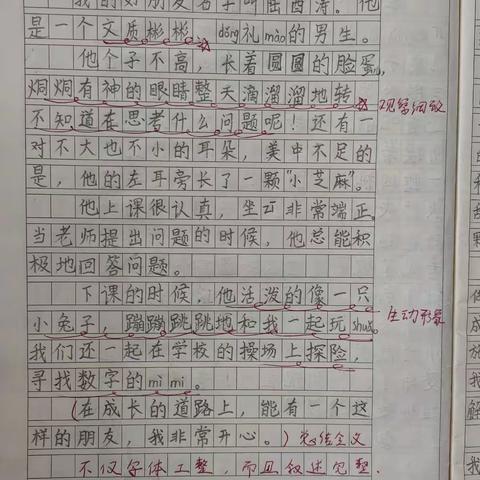 我的好朋友名字叫陆西涛。他
是一个文质彬彬、dǒng礼mào的男生。
他个子不高，长着圆圆的脸蛋，
炯炯有神的眼睛整天滴溜溜地转， 观察细致
不知道在思考什么问题呢！还有一
对不大也不小的耳朵，美中不足的
是，他的左耳旁长了一颗"小芝麻"。
他上课很认真，坐zī非常端正。
当老师提出问题的时候，他总能积
极地回答问题。
下课的时候，他活泼的像一只
小兔子，蹦蹦跳跳地和我一起玩shuǎ。 生动形象
我们还一起在学校的操场上探险，
寻找数字的mì mì。
(在成长的道路上，能有一个这
样的朋友，我非常开心。)总结全文
不仅字体工整，而且叙述完整。